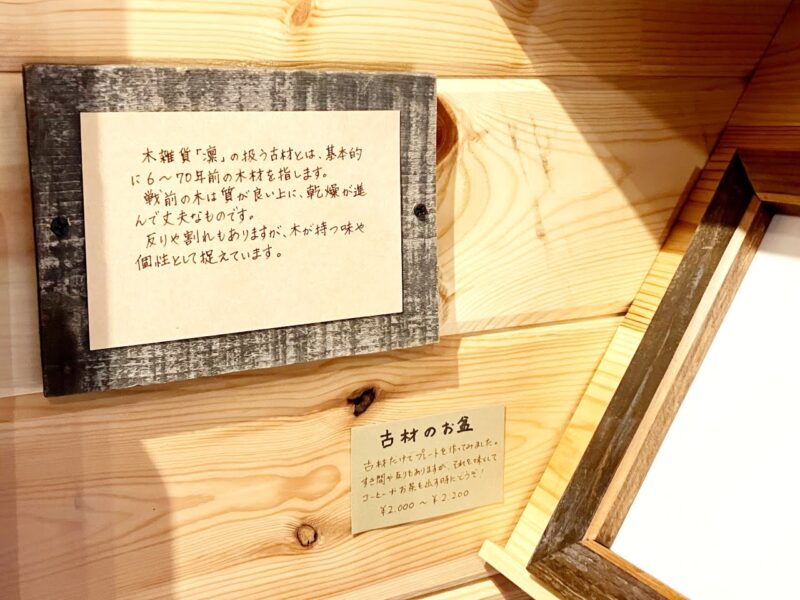 木雑貨「凛」の扱う古材とは、基本的
に6〜70年前の木材を指します。
戦前の木は質が良い上に、乾燥が進
んで丈夫なものです。
反りや割れもありますが、木が持つ味や
個性として捉えています。
古材のお盆
古材だけでプレートを作ってみました。
すき間や反りもありますが、それを味として
コーヒーやお茶を出す時にどうぞ!
¥2.000〜¥2.200